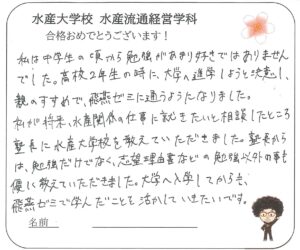 水産大学校 水産流通経営学科
合格おめでとうございます！
私は中学生の頃から勉強があまり好きではありません
でした。高校2年生の時に、大学へ進学しようと決意し、
親のすすめで、飛燕ゼミに通うようになりました。
私が将来、水産関係の仕事に就きたいと相談したところ
塾長に水産大学校を教えていただきました。塾長から
は、勉強だけでなく、志望理由書などの勉強以外の事も
優しく教えていただきました。大学へ入学してからも、
飛燕ゼミで学んだことを活かしていきたいです。
名前